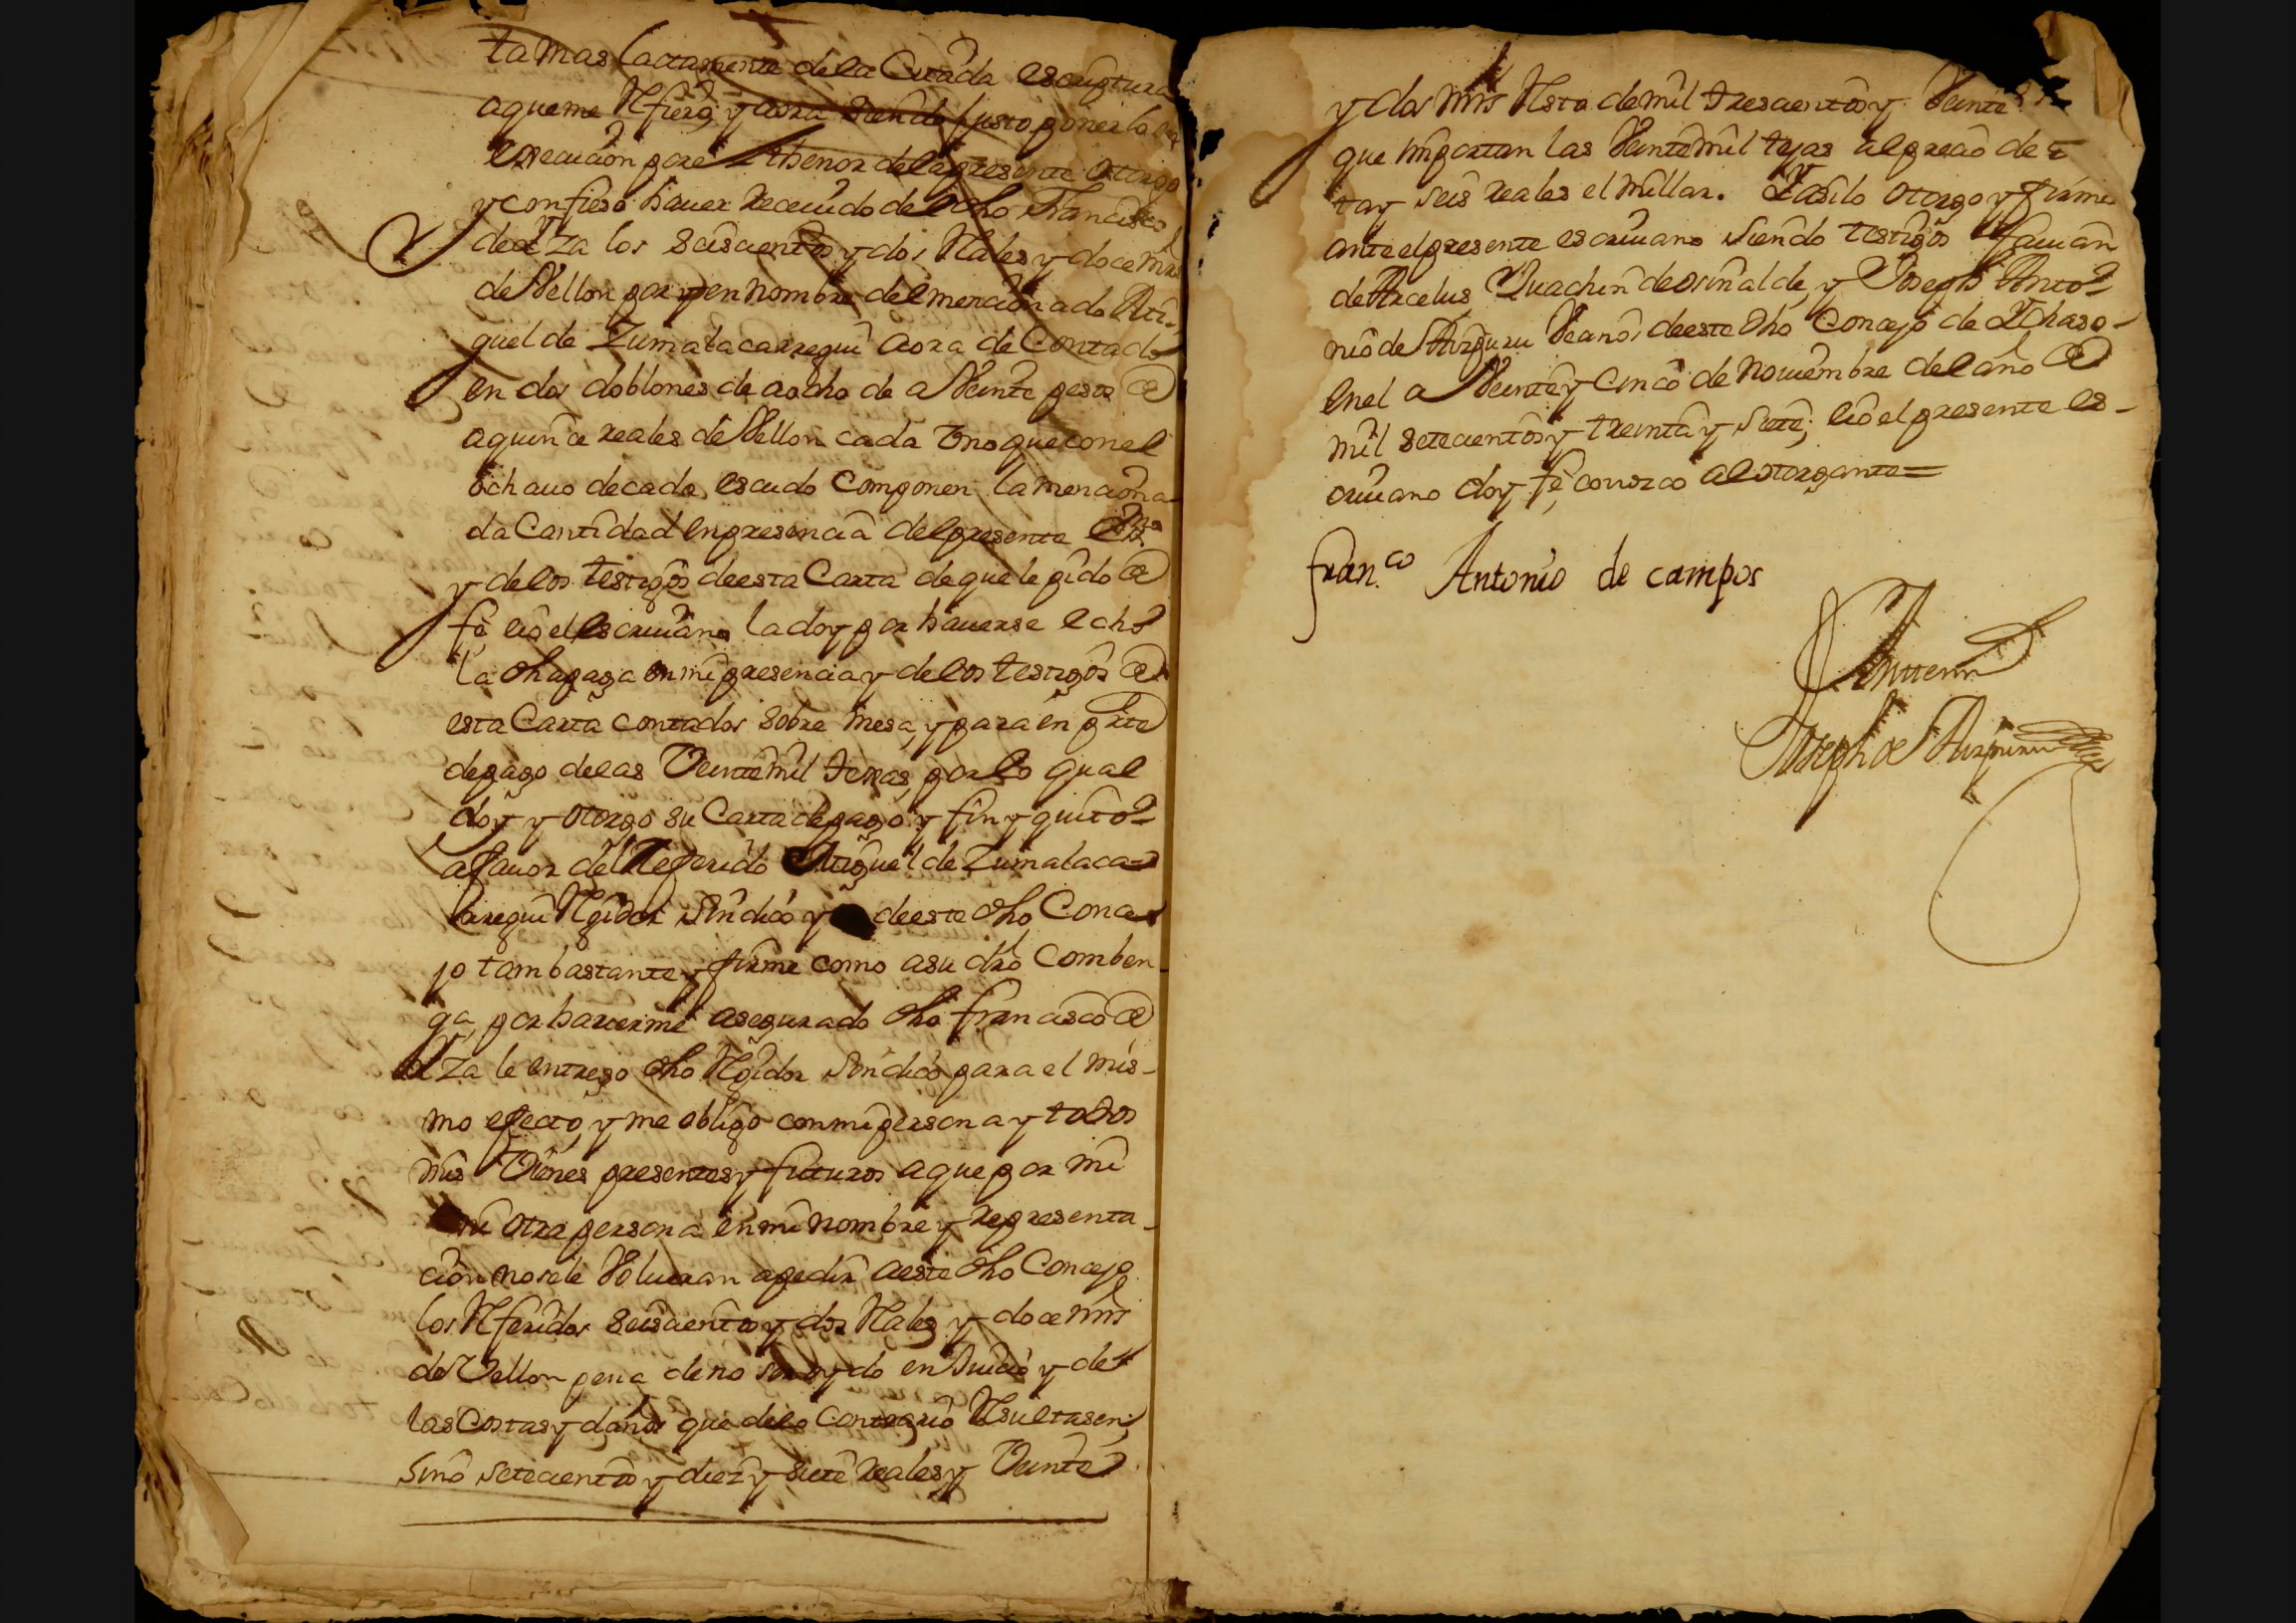 ta mas lactamente dela Citada escriptura
aqueme Refiero, y aora siendo justo ponerlo en
execucion por el thenor dela presente otorgo
y confieso hauer Receuido de dho Francisco
de Alza los seiscientos y dos Reales y doce mrs
de Vellon por y en nombre del mencionado Mi-
guel de Zumalacarregui aora de Contado
en dos doblones de aocho de a Veinte pesos de
aquince reales de Vellon cada Uno que con el
ochauo de cada escudo Componen la menciona-
da Cantidad en presencia del presente Essno
y de los testigos de esta Carta de que le pido de
fe, eio el escriuano la doy por hauerse echo
la dha paga en mi presencia y de los testigos de
esta Carta contados sobre mesa, y para en parte
de pago de las Veinte mil texas, por lo qual
doy y otorgo su Carta de pago y fin y quito
a fauor del Referido Miguel de Zumalaca-
rregui Regidor Sindico y de este dho Conce
jo tam bastante y firme como a su dro Comben-
ga, por hauerme asegurado dho francisco de
Alza le entrego dho Regidor Sindico para el mis-
mo efecto, y me obligo con mi persona y todos
mis Vienes presentes y futuros a que por mi
ni otra persona en mi nombre y representa-
cion no se le Volueran a pedir a este dho Concejo
los Referidos seiscientos y dos Reales y doce mrs
de Vellon pena de no ser oydo en Juicio y de
las Costas y daños que delo Contrario Resultasen;
Sino setecientos y diez y siete Reales y Veinte
y dos mrs Resto de mil trescientos y Veinte
que importan las Veinte mil tejas al precio de
ta y seis reales el millar. Y asi lo otorgo y firme
ante el presente escriuano siendo testigos Juan
de Arcelus Juachin de orinalde, y Joseph Anto-
nio de Aizpuru Vecinos de este dho Concejo de Ychaso-
en el a Veinte y Cinco de Nouiembre del año de
mil setecientos y treinta y siete; eio el presente es-
criuano doy fe, conozco al otorgante=
Fran.co Antonio de campos
Ante mi
Joseph de Aizpuru